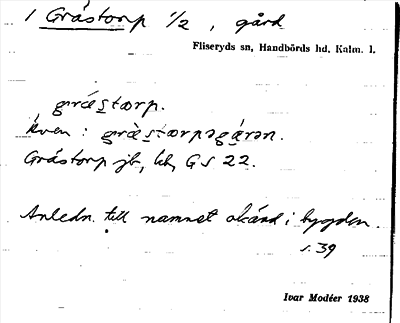 1 Gråstorp 1/2, gård
Fliseryds sn, Handbörds hd, Kalm. l.
græ̀starp.
Även: græ̀starpəgárən.
Gråstorp jb, kb, GS 22.
Anledn. till namnet okänd i bygden.
s. 39
Ivar Modéer 1938